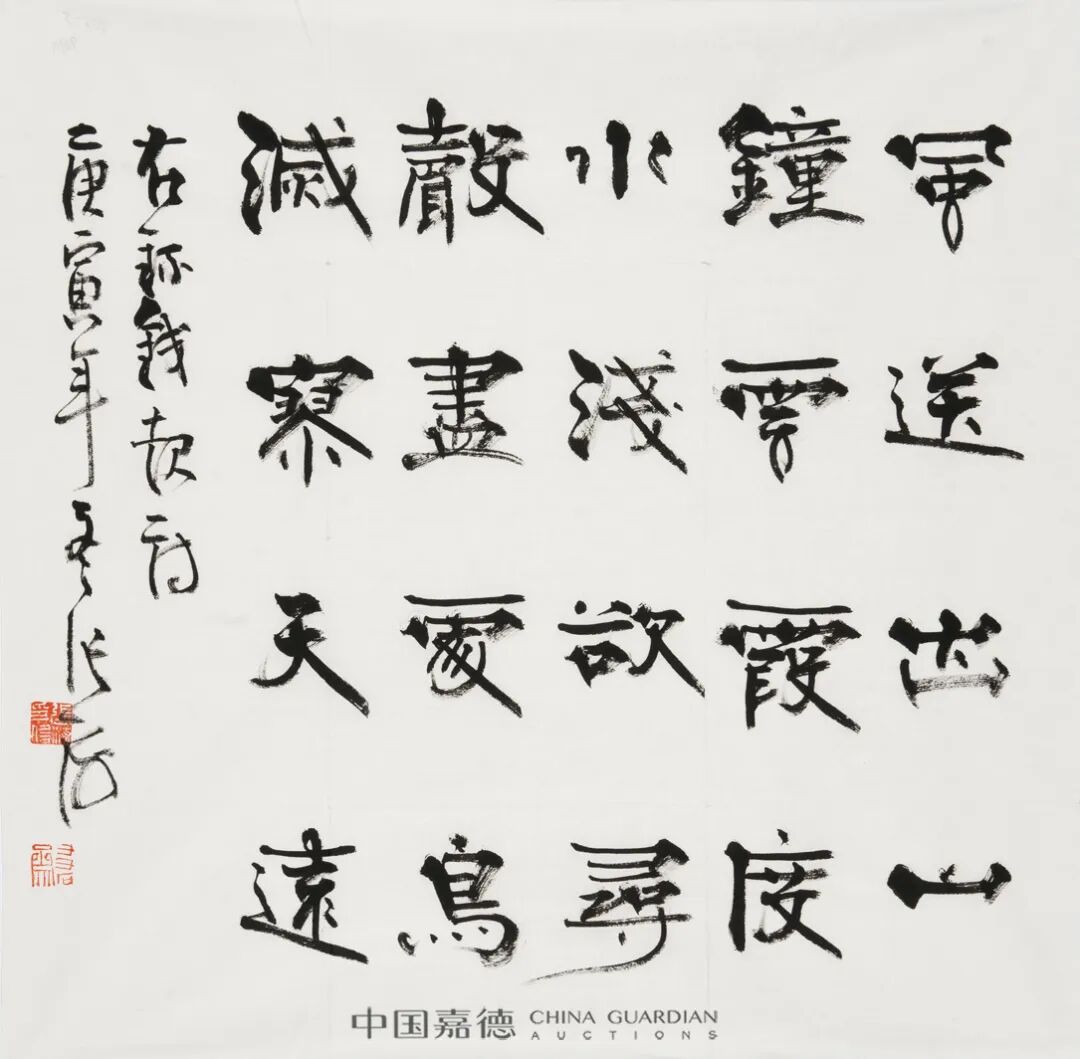 風送出山
鐘雲霞度
水淺欲尋
聲盡處鳥
滅寥天遠
右録錢起詩
庚寅年冬張海
中国嘉德 CHINA GUARDIAN
AUCTIONS